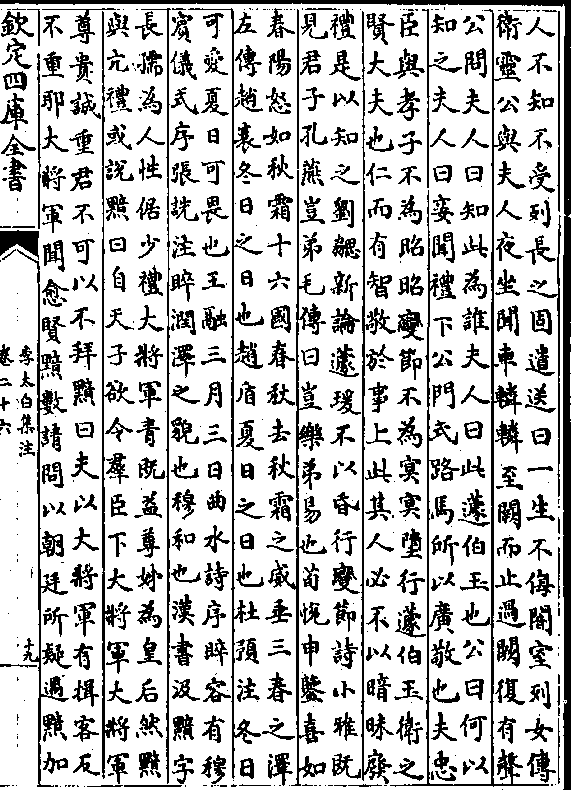 人不知不受列長之固遣送曰一生不侮闇室列女傳
衛靈公與夫人夜坐聞車轔轔至闕而止過闕復有聲
公問夫人曰知此為誰夫人曰此蘧伯玉也公曰何以
知之夫人曰妾聞禮下公門式路馬所以廣敬也夫忠
臣與孝子不為昭昭變節不為冥冥墮行蘧伯玉衛之
賢大夫也仁而有智敬於事上此其人必不以暗昧廢
禮是以知之劉勰新論蘧瑗不以昏行變節詩小雅既
見君子孔燕豈弟毛傳曰豈樂弟易也荀悅申鑒喜如
春陽怒如秋霜十六國春秋去秋霜之威垂三春之澤
左傳趙衰冬日之日也趙盾夏日之日也杜預注冬日
可愛夏日可畏也王融三月三日曲水詩序睟容有穆
賓儀式序張銑注睟潤澤之貌也穆和也漢書汲黯字
長孺為人性倨少禮大將軍青既益尊姊為皇后然黯
與亢禮或說黯曰自天子欲令羣臣下大將軍大將軍
尊貴誠重君不可以不拜黯曰夫以大將軍有揖客反
不重耶大將軍聞愈賢黯數請問以朝廷所疑遇黯加
欽定四庫全書
李太白集注
卷二十六
十九